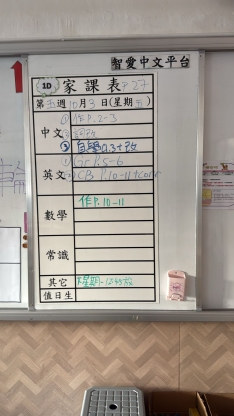 智愛中文平台
1D 家課表 P.27
第五週10月3日(星期五)
①作P.2-3
中文②詞改
③自學Q.3+改
①Gr P.5-6
英文②CB P.10-11+corr
作P.10-11
數學
常識
其它 星期
值日生